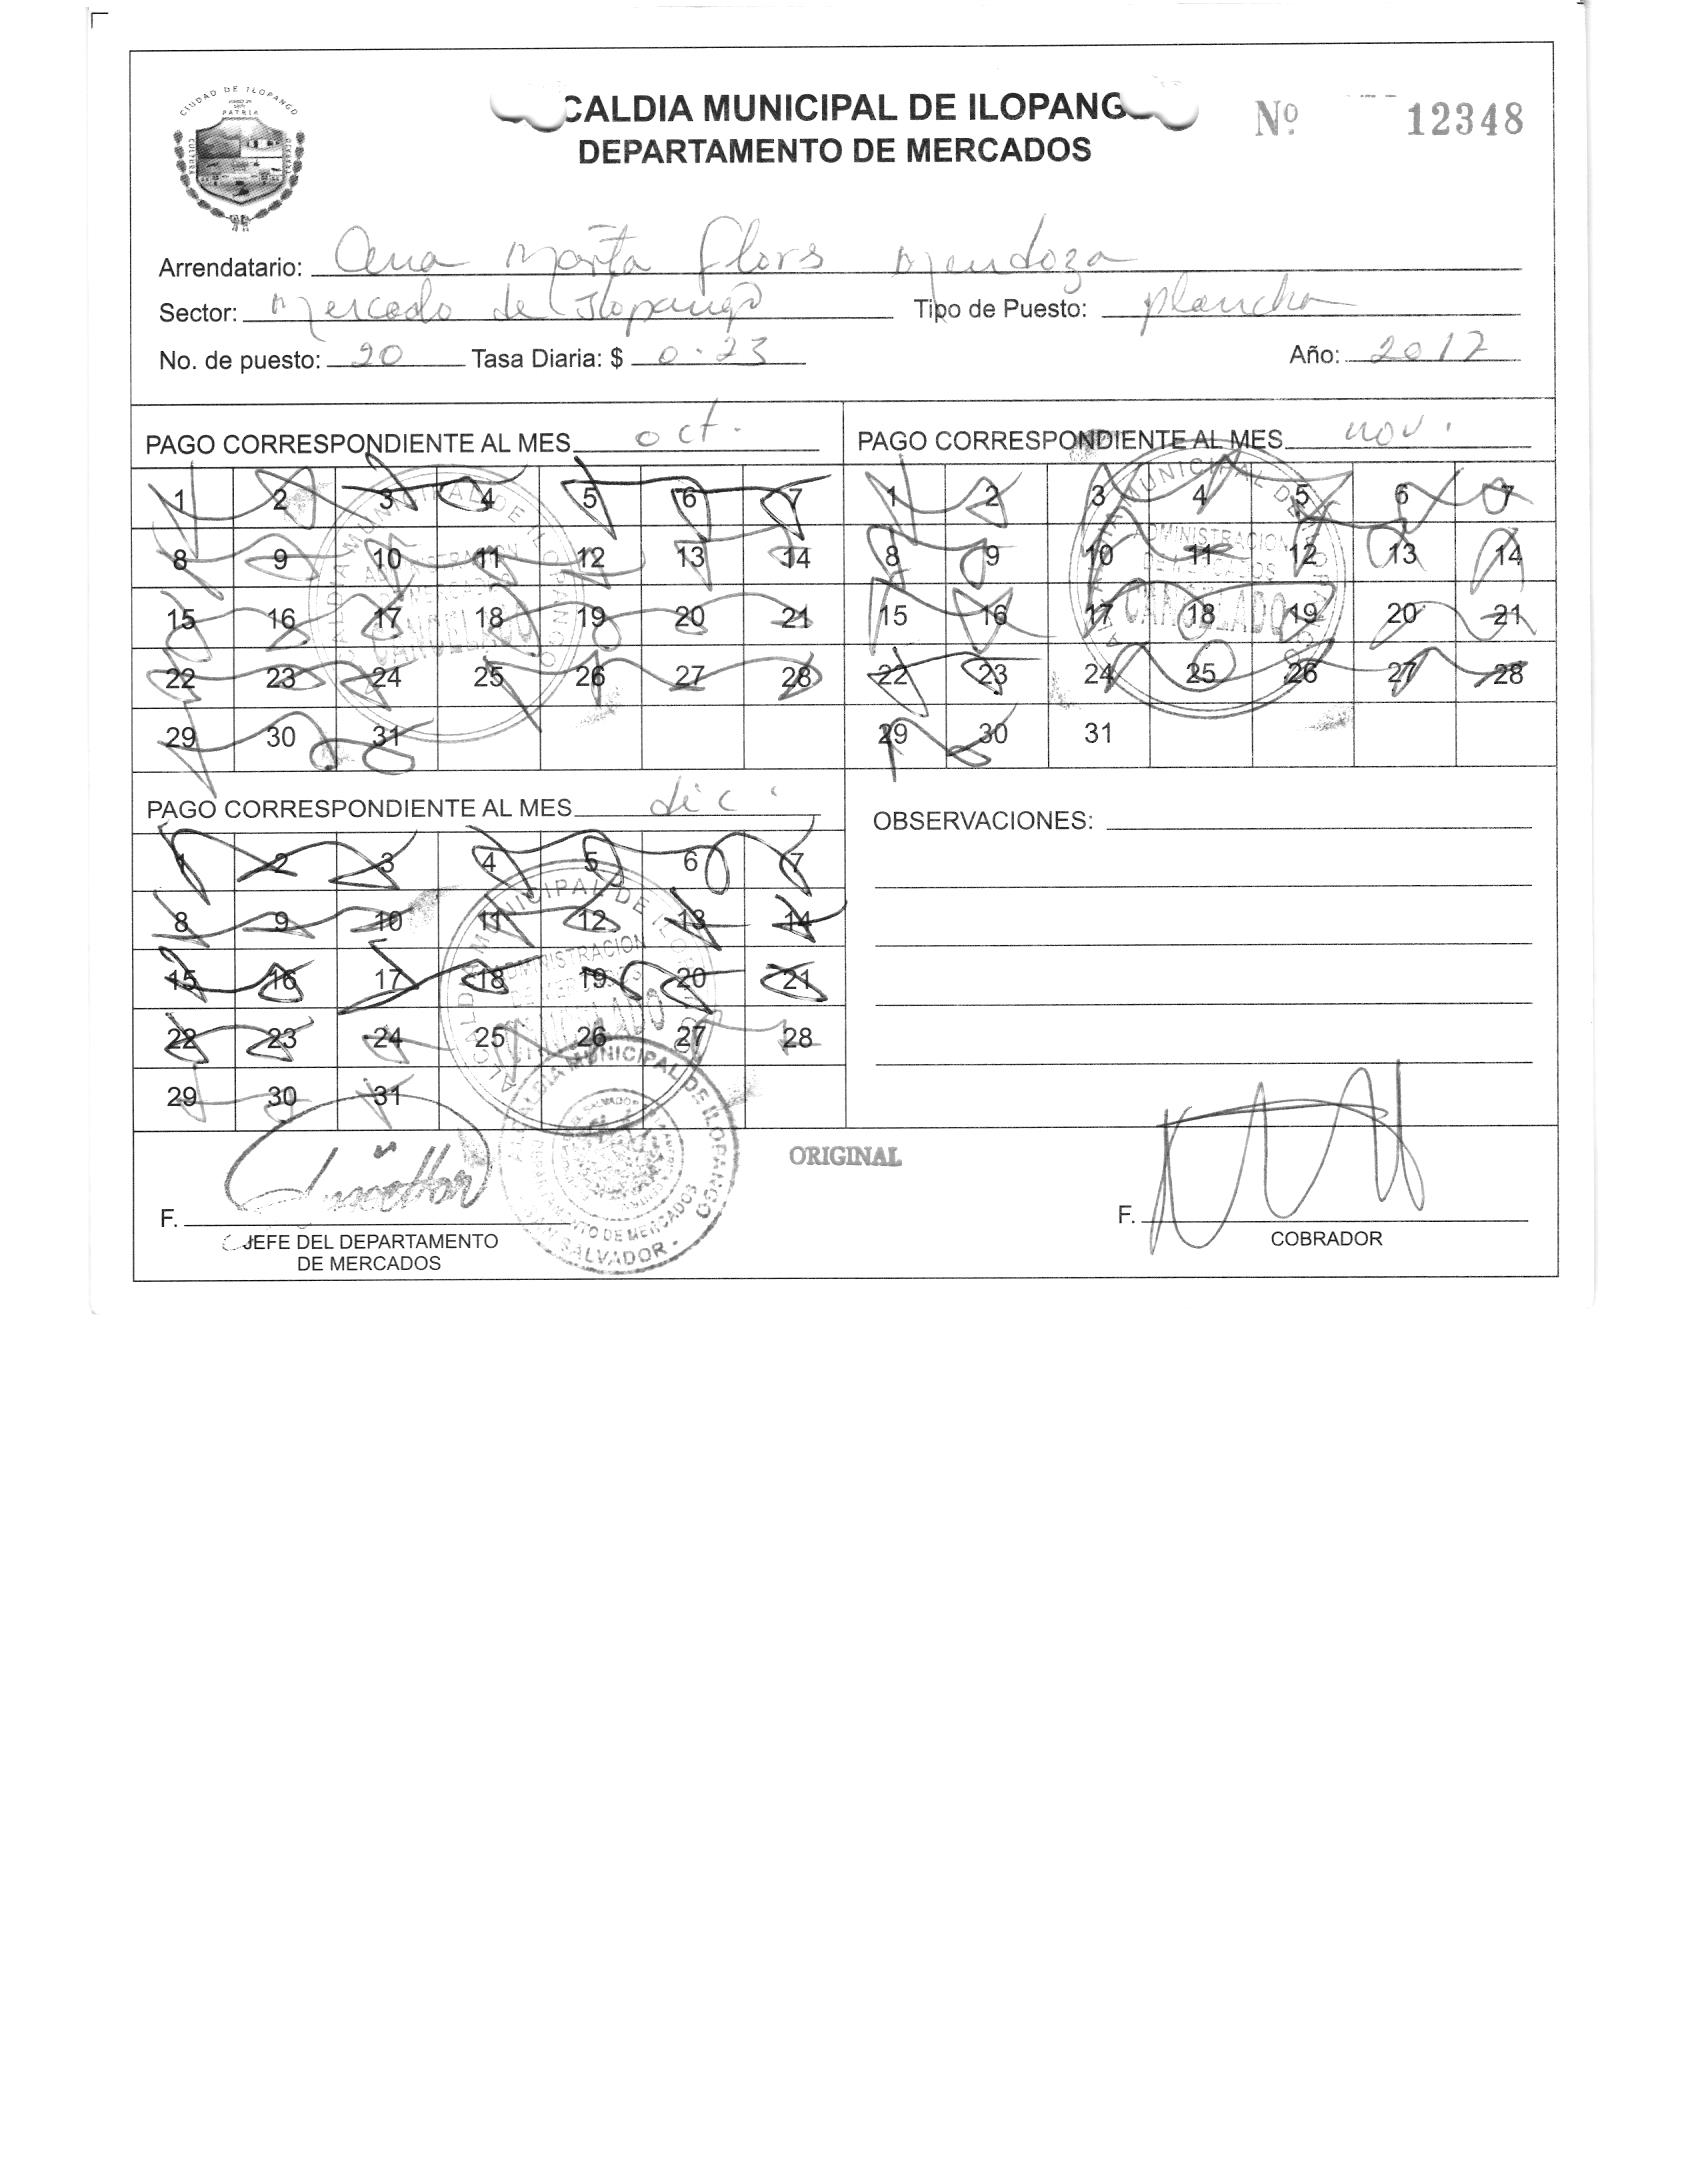 CIUDAD DE ILOPANGO
PATRIA
CALDIA MUNICIPAL DE ILOPANG
DEPARTAMENTO DE MERCADOS
Nº 12348
Arrendatario: Ana Marta Flors Mendoza
Sector: Mercado de Ilopango Tipo de Puesto: plancha
No. de puesto: 20 Tasa Diaria: $ 0.23 Año: 2017
PAGO CORRESPONDIENTE AL MES oct.
1 2 3 4 5 6 7
8 9 10 11 12 13 14
15 16 17 18 19 20 21
22 23 24 25 26 27 28
29 30 31
PAGO CORRESPONDIENTE AL MES nov.
1 2 3 4 5 6 7
8 9 10 11 12 13 14
15 16 17 18 19 20 21
22 23 24 25 26 27 28
29 30 31
ADMINISTRACION
CANCELADO
PAGO CORRESPONDIENTE AL MES dic.
1 2 3 4 5 6 7
8 9 10 11 12 13 14
15 16 17 18 19 20 21
22 23 24 25 26 27 28
29 30 31
OBSERVACIONES:
ORIGINAL
ALCALDIA MUNICIPAL DE ILOPANGO
DEPARTAMENTO DE MERCADOS
SAN SALVADOR
F.
JEFE DEL DEPARTAMENTO
DE MERCADOS
F.
COBRADOR